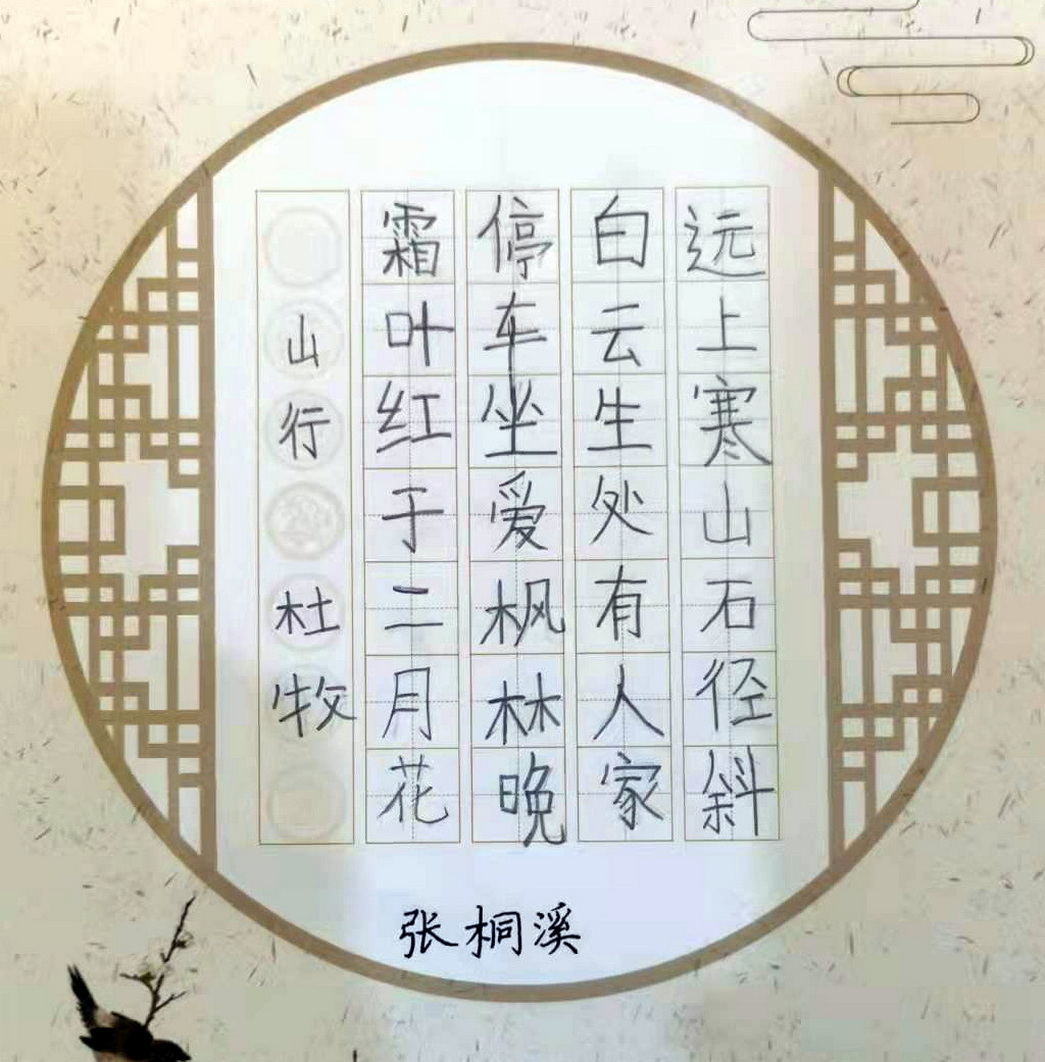 远上寒山石径斜
白云生处有人家
停车坐爱枫林晚
霜叶红于二月花
山行 杜牧
张桐溪